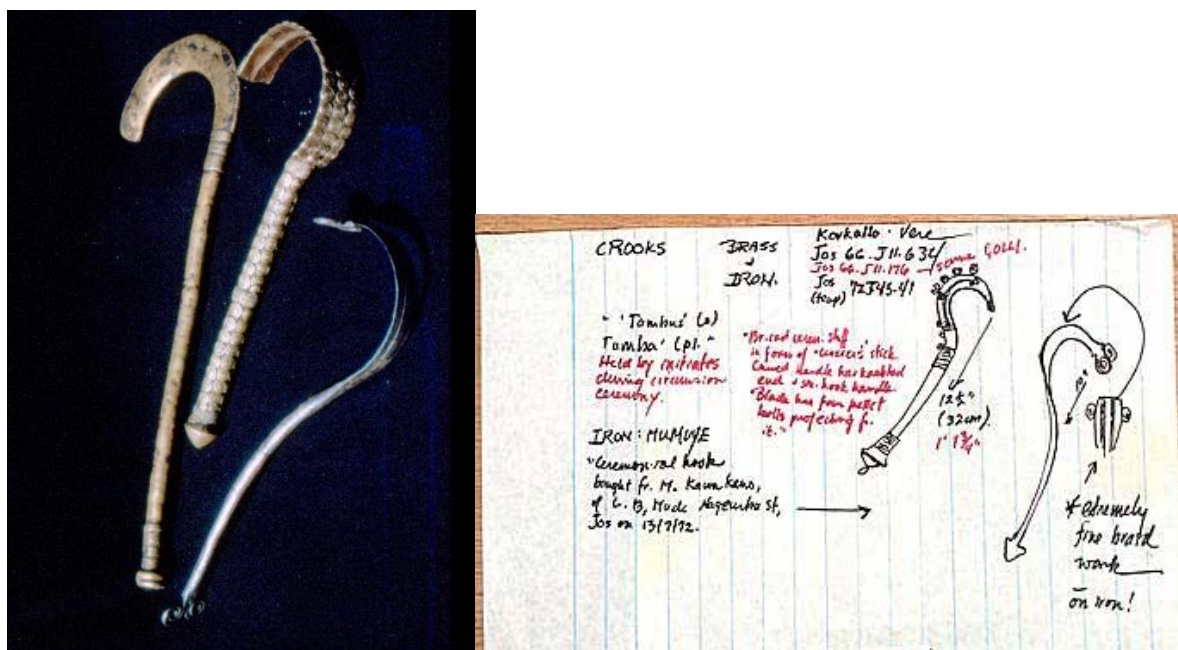 CROOKS
BRASS
+
IRON.
Korkallo · Vere
Jos 66.J11.634
Jos 66.J11.176 – same COLL.
Jos 72J45.41
(temp)
"'Tombus' (s)
Tomba' (pl."
Held by initiates
during circumsion
ceremony.
"Broad cerem. staff
in form of
stick
handle has knobbed
end + hook handle.
"Blade has four
projecting f.
it."
12½"
(32cm)
1' 1¾"
IRON: MUMUYE
"Ceremonial hook
bought fr. M. Kawu Kano,
of C. 13,
St,
Jos on 13/7/72.
10"
* extremely
fine braid
work
on iron!